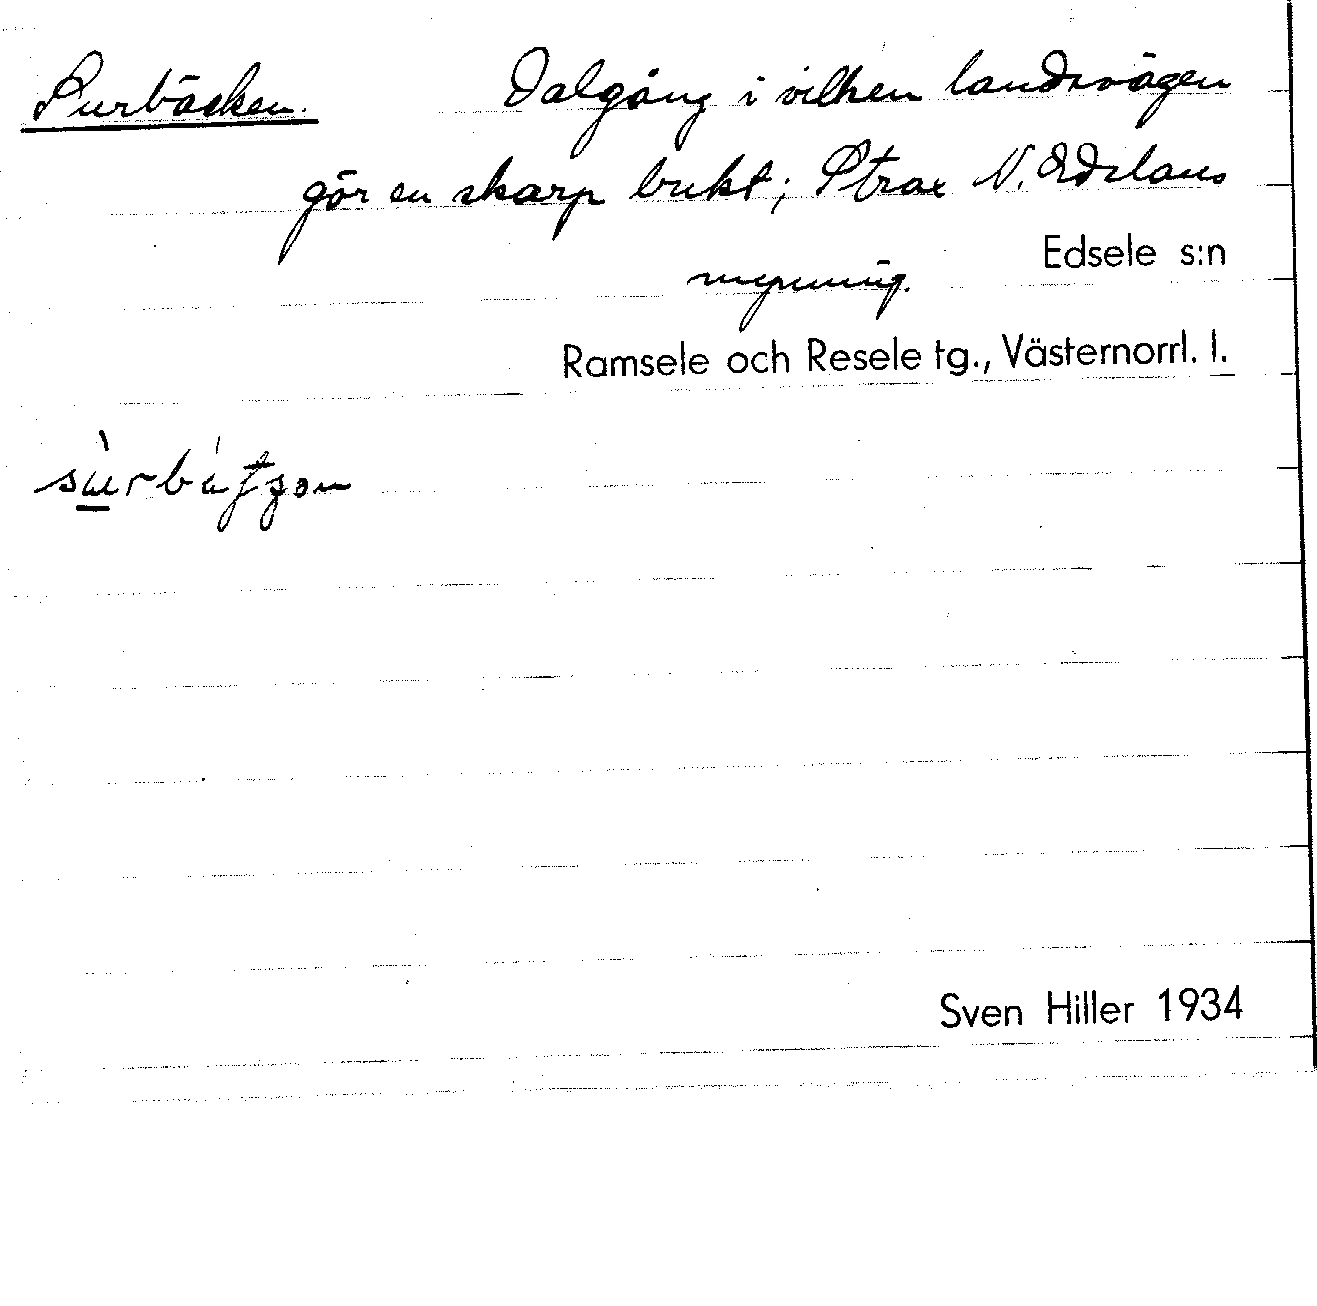 Surbäcken. Dalgång i vilken landsvägen
gör en skarp bukt; Strax N. Edslans
mynning.
Edsele s:n
Ramsele och Resele tg., Västernorrl. l.
Sven Hiller 1934